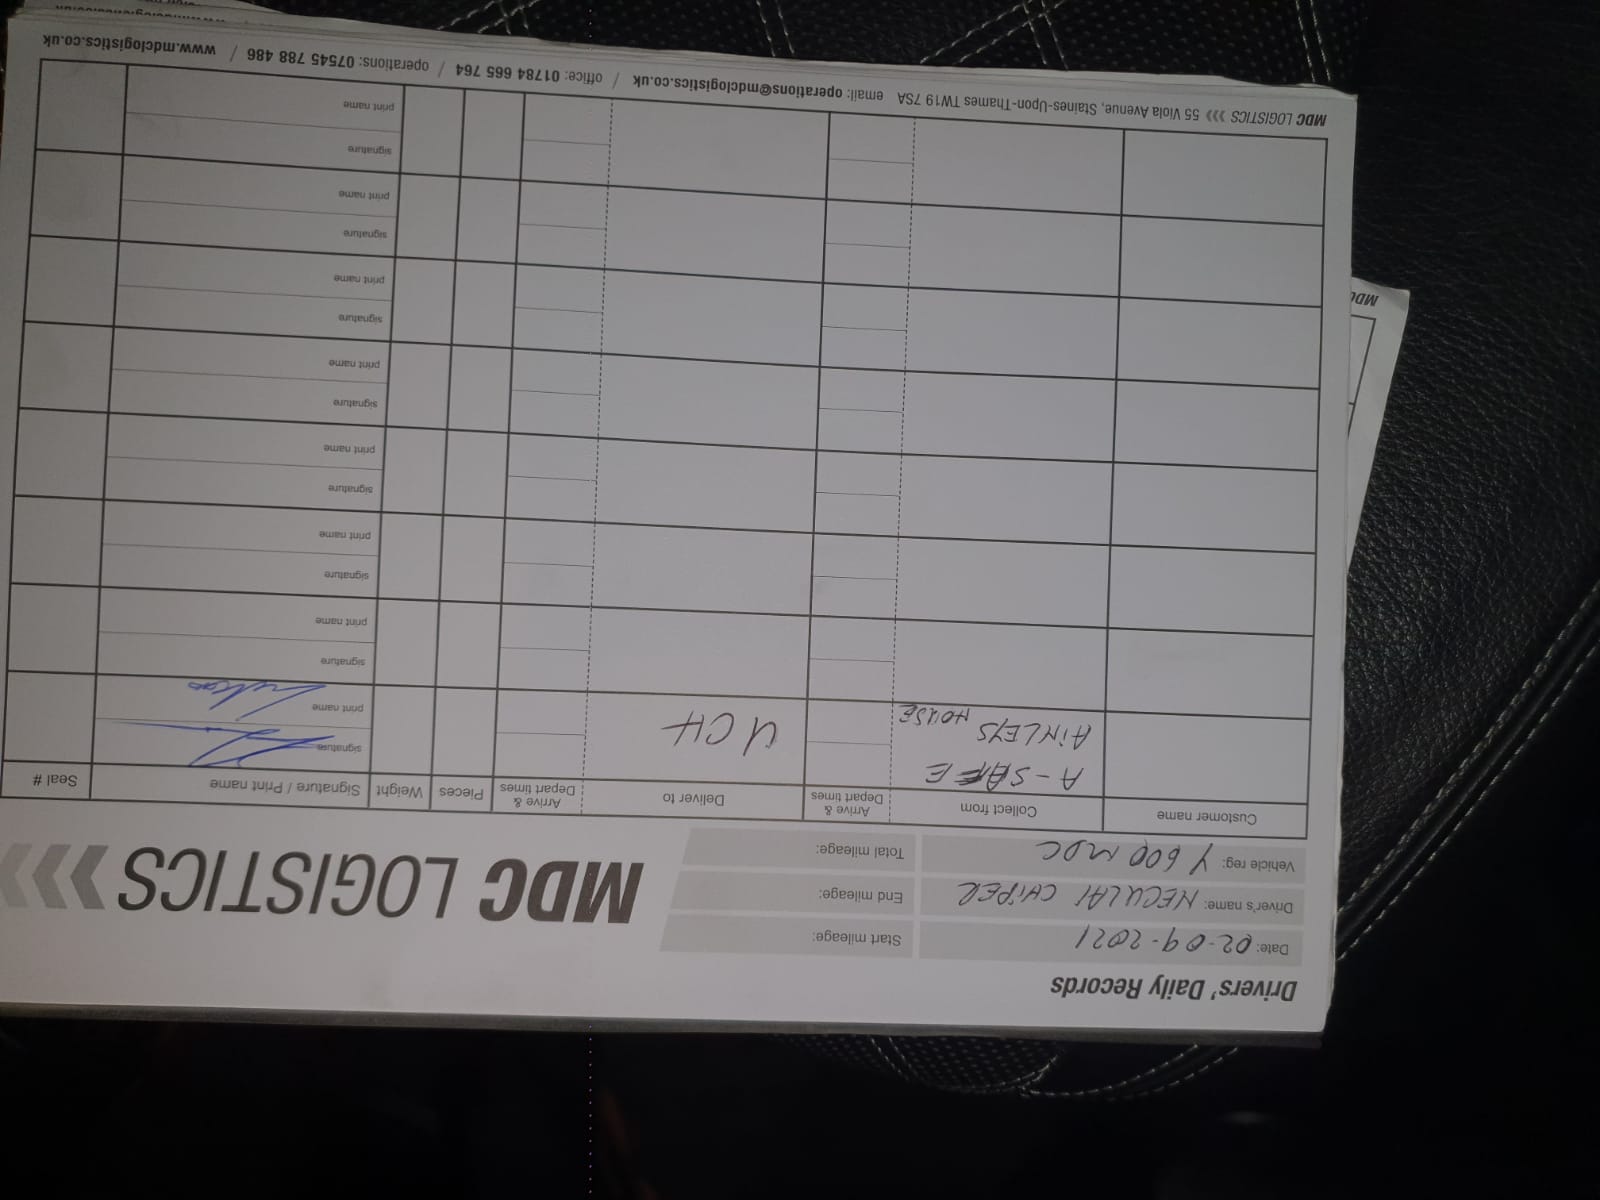 Drivers' Daily Records
MDC LOGISTICS
Date: 02-09-2021
Start mileage:
Driver's name: NECULAI CHIPER
End mileage:
Vehicle reg: Y 600 MDC
Total mileage:
Customer name
Collect from
Arrive & Depart times
Deliver to
Arrive & Depart times
Pieces
Weight
Signature / Print name
Seal #
A-SAFE
AINLEYS HOUSE
UCH
signature
print name
signature
print name
signature
print name
signature
print name
signature
print name
signature
print name
signature
print name
signature
print name
MDC LOGISTICS 55 Viola Avenue, Staines-Upon-Thames TW19 7SA email: operations@mdclogistics.co.uk / office: 01784 665 764 / operations: 07545 788 486 / www.mdclogistics.co.uk
MDC